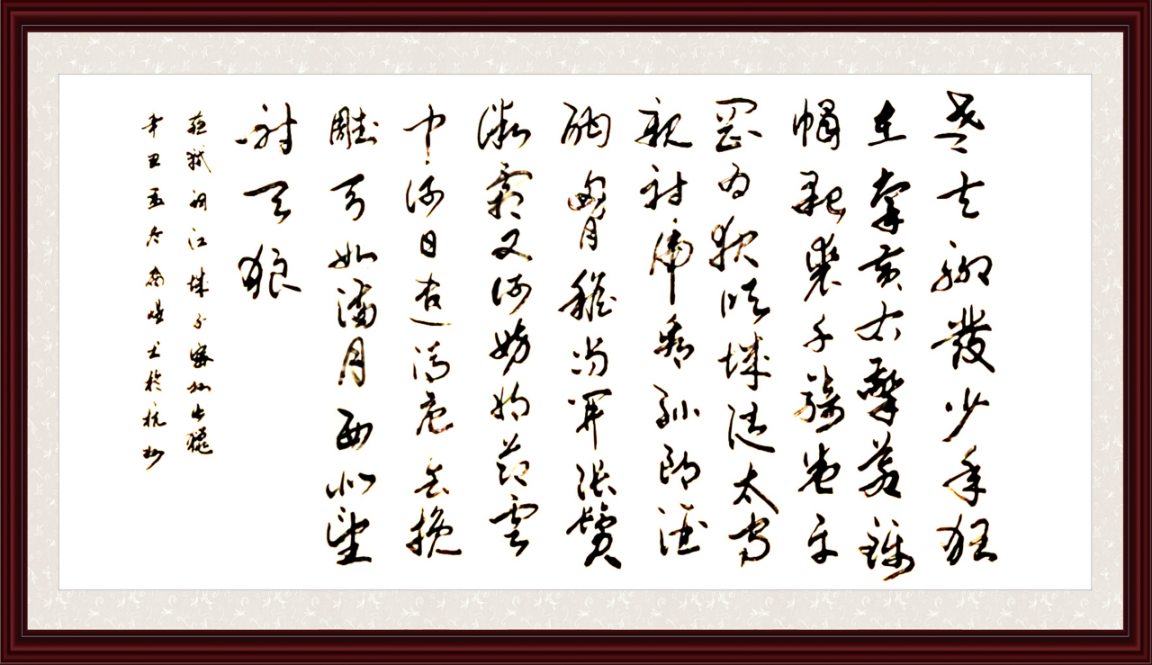 老夫聊發少年狂
左牽黃右擎蒼錦
帽貂裘千騎卷平
岡為報傾城隨太守
親射虎看孫郎酒
酣胸膽尚開張鬢
微霜又何妨持節雲
中何日遣馮唐會挽
雕弓如滿月西北望
射天狼
蘇軾詞江城子密州出獵
辛丑孟冬士於杭州